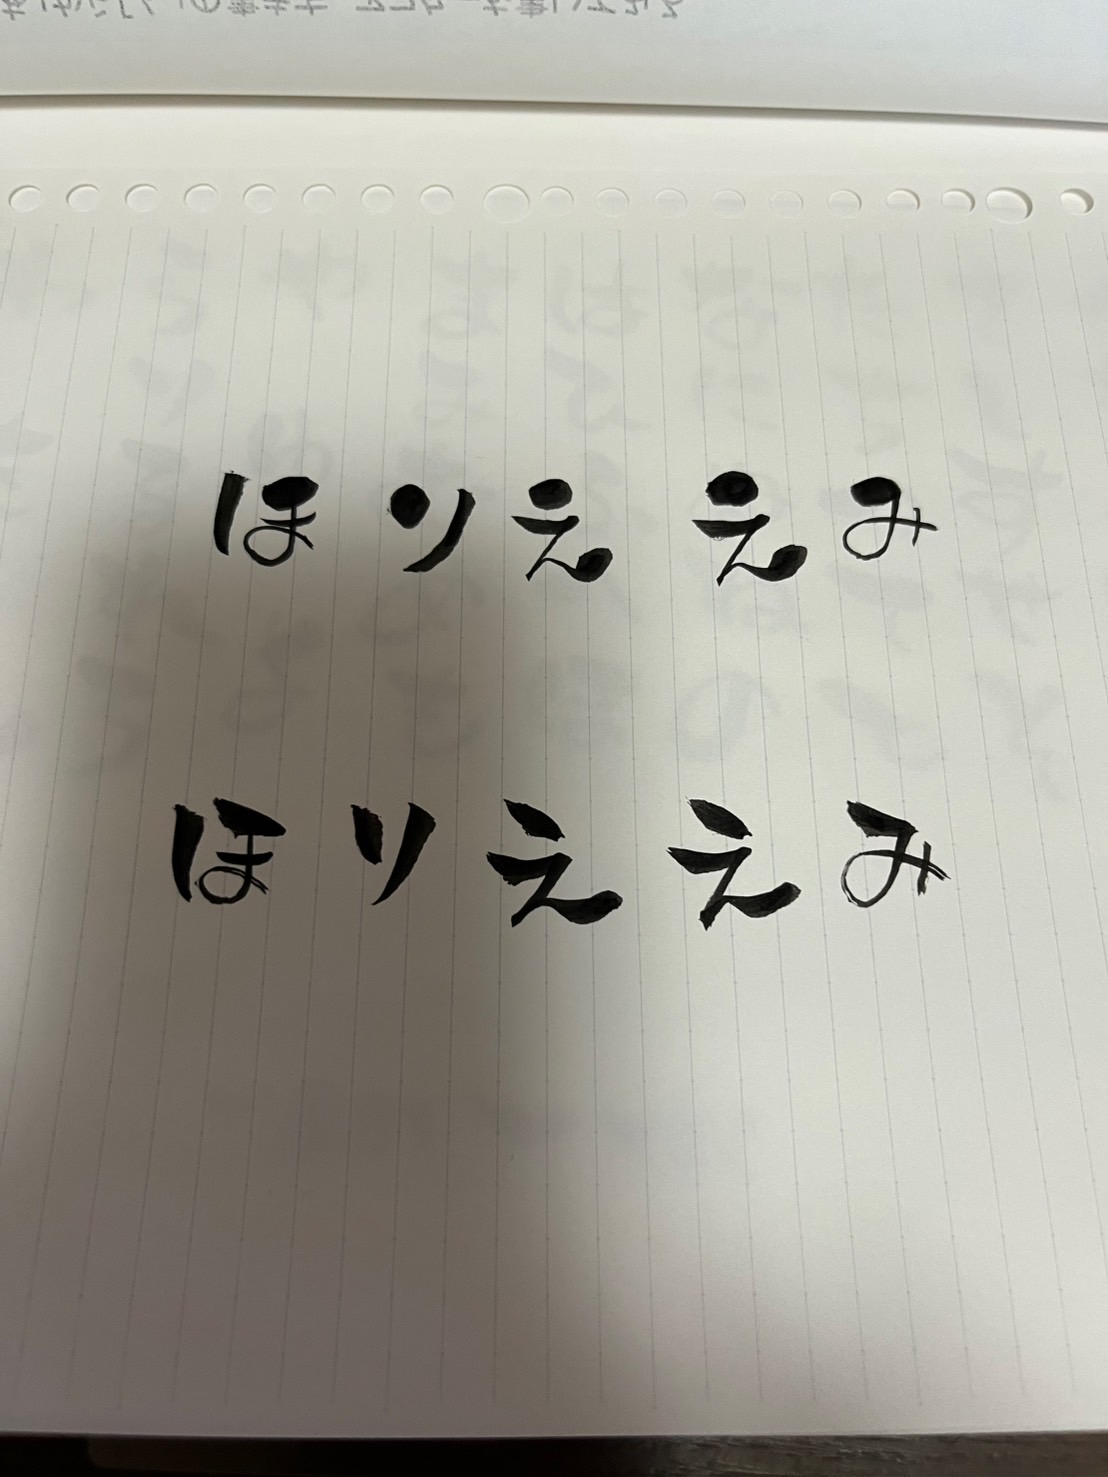 ほりええみ
ほりええみ